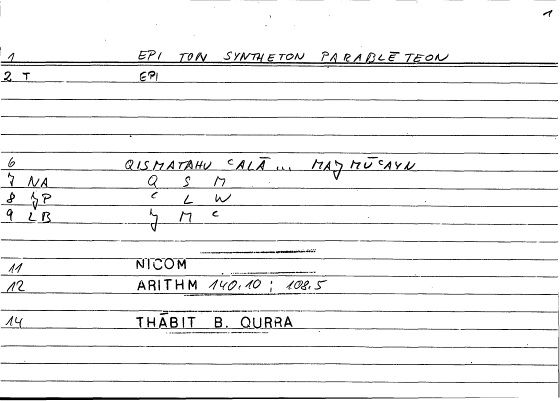 1
1 EPI TON SYNTHETON PARABLĒTEON
2 T EPI
6 QISMATAHU ᶜALĀ... MAJMŪᶜAYN
7 NA Q S M
8 JP ᶜ L W
9 LB J M ᶜ
11 NICOM
12 ARITHM 140.10 ; 108.5
14 THĀBIT B. QURRA